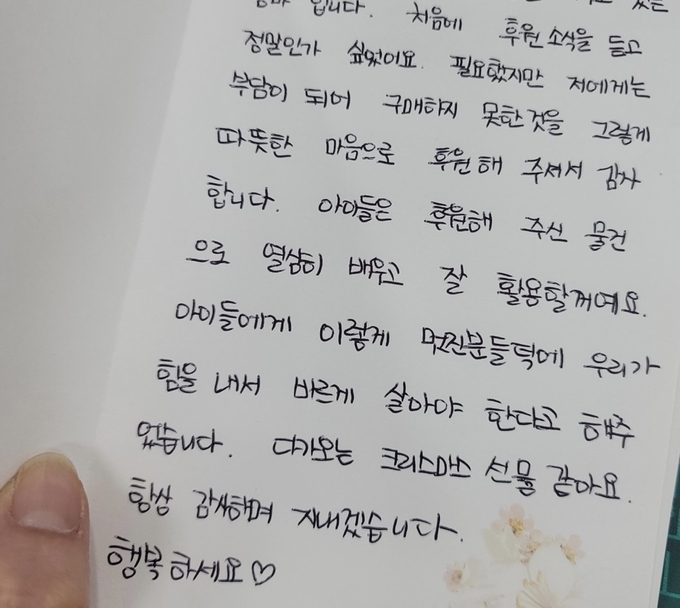 입니다. 처음에 후원 소식을 듣고
정말인가 싶었어요. 필요했지만 저에게는
부담이 되어 구매하지 못한것을 그렇게
따뜻한 마음으로 후원해 주셔서 감사
합니다. 아이들은 후원해 주신 물건
으로 열심히 배우고 잘 활용할꺼예요.
아이들에게 이렇게 멋진분들덕에 우리가
힘을 내서 바르게 살아야 한다고 해주
었습니다. 다가오는 크리스마스 선물 같아요.
항상 감사하며 지내겠습니다.
행복하세요♡